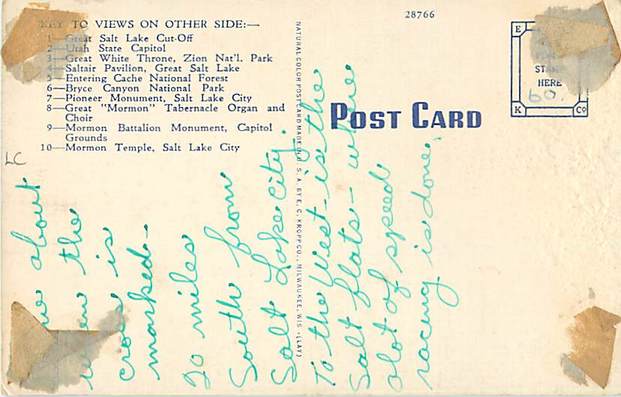 KEY TO VIEWS ON OTHER SIDE:—
1—Great Salt Lake Cut-Off
2—Utah State Capitol
3—Great White Throne, Zion Nat'l. Park
4—Saltair Pavilion, Great Salt Lake
5—Entering Cache National Forest
6—Bryce Canyon National Park
7—Pioneer Monument, Salt Lake City
8—Great "Mormon" Tabernacle Organ and
Choir
9—Mormon Battalion Monument, Capitol
Grounds
10—Mormon Temple, Salt Lake City
LC
28766
POST CARD
E C
STAMP
HERE
60
K Co
NATURAL COLOR POST CARD MADE IN U. S. A. BY E. C. KROPP CO., MILWAUKEE, WIS.
about
the
cross is
marked--
20 miles
South from
Salt Lake City.
To the West-is the
Salt flats- where
alot of speed
racing is done.